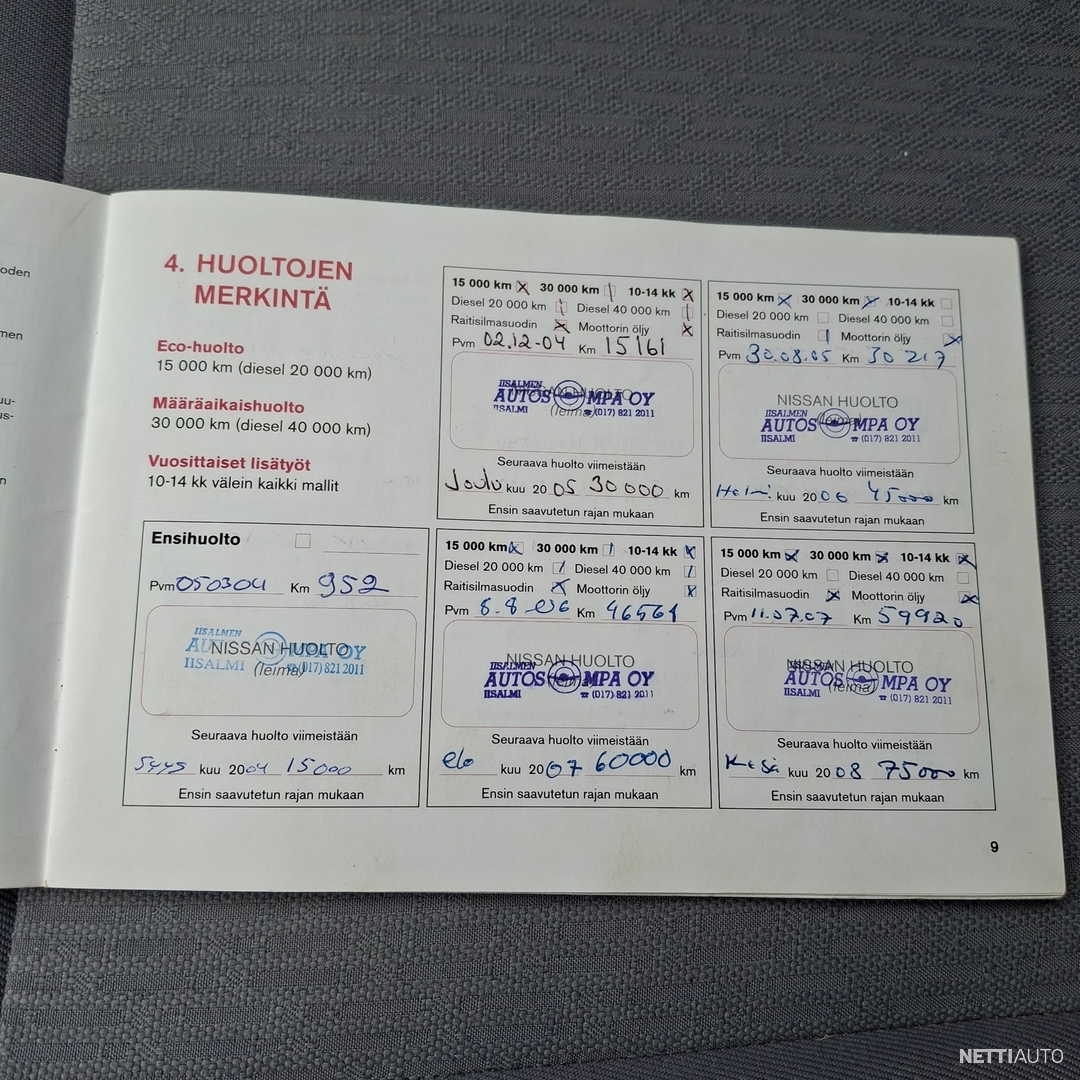 oden
men
uu-
us-
n
4. HUOLTOJEN
MERKINTÄ
Eco-huolto
15 000 km (diesel 20 000 km)
Määräaikaishuolto
30 000 km (diesel 40 000 km)
Vuosittaiset lisätyöt
10-14 kk välein kaikki mallit
15 000 km 30 000 km 10-14 kk
Diesel 20 000 km Diesel 40 000 km
Raitisilmasuodin Moottorin öljy
Pvm 02.12-04 Km 15161
IISALMEN
AUTOS MPA OY
IISALMI (017) 821 2011
Seuraava huolto viimeistään
Joulu kuu 20 05 30000 km
Ensin saavutetun rajan mukaan
15 000 km 30 000 km 10-14 kk
Diesel 20 000 km Diesel 40 000 km
Raitisilmasuodin Moottorin öljy
Pvm 30.08.05 Km 30 217
NISSAN HUOLTO
(leima)
IISALMEN
AUTOS MPA OY
IISALMI (017) 821 2011
Seuraava huolto viimeistään
Helmi kuu 2006 45000 km
Ensin saavutetun rajan mukaan
Ensihuolto
Pvm 050304 Km 952
NISSAN HUOLTO
(leima)
IISALMEN
AU MPA OY
IISALMI (017) 821 2011
Seuraava huolto viimeistään
Syys kuu 2004 15000 km
Ensin saavutetun rajan mukaan
15 000 km 30 000 km 10-14 kk
Diesel 20 000 km Diesel 40 000 km
Raitisilmasuodin Moottorin öljy
Pvm 8-8-06 Km 46561
NISSAN HUOLTO
(leima)
IISALMEN
AUTOS MPA OY
IISALMI (017) 821 2011
Seuraava huolto viimeistään
elo kuu 2007 60000 km
Ensin saavutetun rajan mukaan
15 000 km 30 000 km 10-14 kk
Diesel 20 000 km Diesel 40 000 km
Raitisilmasuodin Moottorin öljy
Pvm 11.07.07 Km 59920
NISSAN HUOLTO
(leima)
AUTOS MPA OY
IISALMI (017) 821 2011
Seuraava huolto viimeistään
Kesä kuu 2008 75000 km
Ensin saavutetun rajan mukaan
9
NETTIAUTO